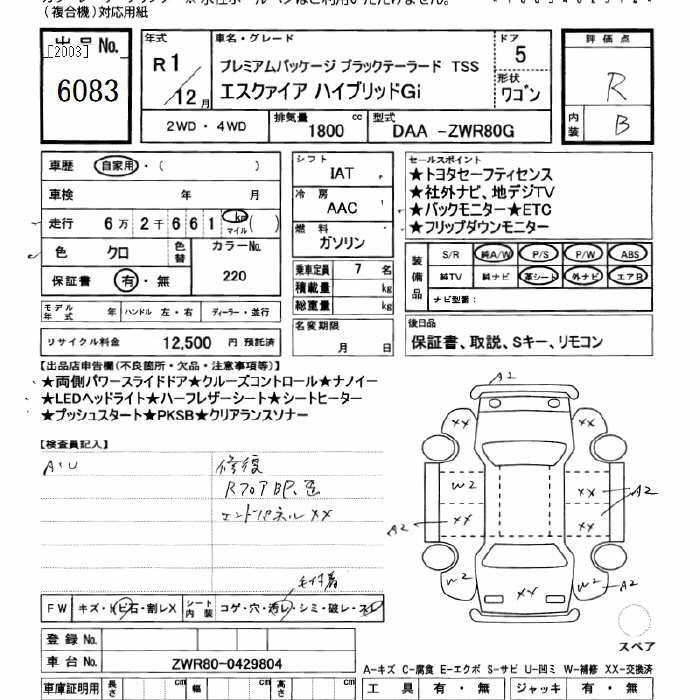 (複合機)対応用紙
出品No.
[2003]
6083
年式
R1/12月
車名・グレード
プレミアムパッケージ ブラックテーラード TSS
エスクァイア ハイブリッドGi
ドア
5
形状
ワゴン
評価点
R
内装
B
2WD・4WD
排気量
1800 cc
型式
DAA -ZWR80G
車歴
自家用・( )
車検
年 月
走行
6万2千661 km マイル( )
色
クロ
色替
カラーNo.
220
保証書
有・無
モデル年式
年
ハンドル 左・右
ディーラー・並行
リサイクル料金
12,500 円 預託済
シフト
IAT
冷房
AAC
燃料
ガソリン
乗車定員
7 名
積載量
kg
総重量
kg
名変期限
月 日
セールスポイント
★トヨタセーフティセンス
★社外ナビ、地デジTV
★バックモニター★ETC
★フリップダウンモニター
装備品
S/R 純A/W P/S P/W ABS
純TV 純ナビ 革シート 外ナビ エアB
ナビ型番:
後日品
保証書、取説、Sキー、リモコン
【出品店申告欄(不良箇所・欠品・注意事項等)】
★両側パワースライドドア★クルーズコントロール★ナノイー
★LEDヘッドライト★ハーフレザーシート★シートヒーター
★プッシュスタート★PKSB★クリアランスソナー
【検査員記入】
A・U
修復
Rフロア
エンドパネル XX
FW
キズ・トビ石・割レX
シート内装
コゲ・穴・汚レ・シミ・破レ・スレ
登録No.
車台No.
ZWR80-0429804
車庫証明用
長さ
cm
幅
cm
高さ
cm
A1
XX
XX
W2
XX
A2
XX
A2
XX
W2
XX
W2
A2
スペア
A-キズ C-腐食 E-エクボ S-サビ U-凹ミ W-補修 XX-交換済
工具 有・無
ジャッキ 有・無